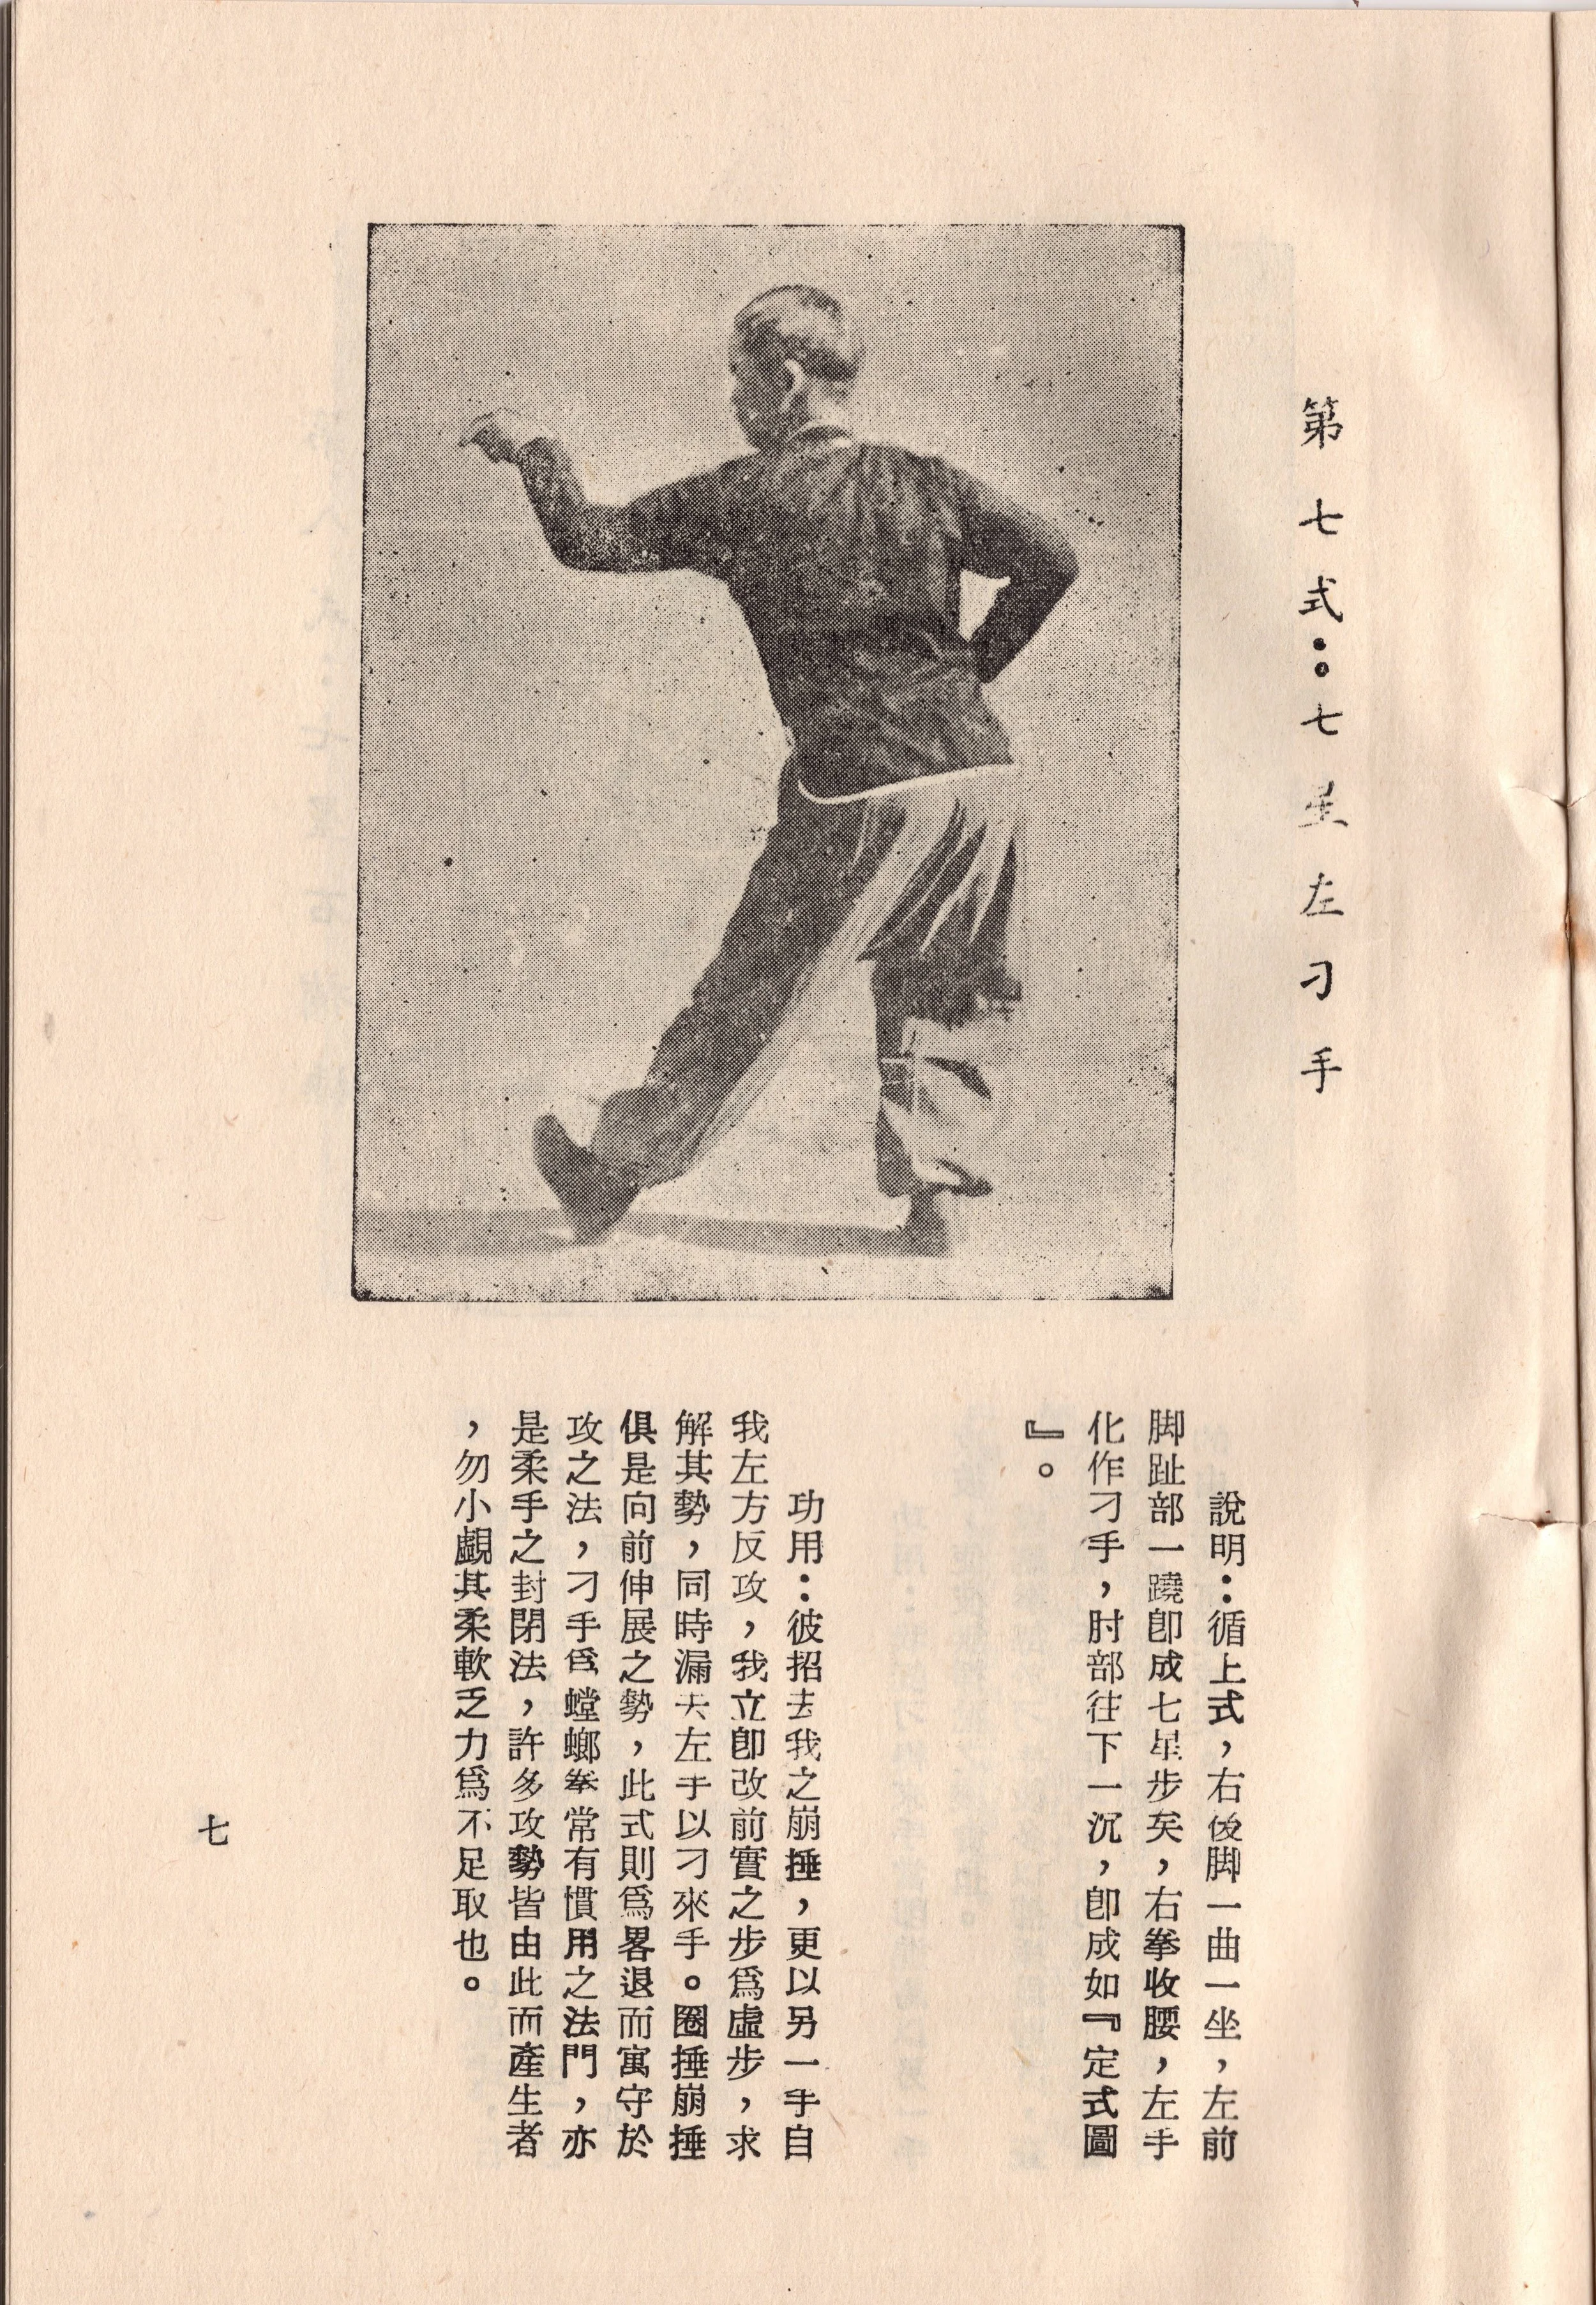 第七式：七星左刁手
說明：循上式，右後脚一曲一坐，左前
脚趾部一蹺卽成七星步矣，右拳收腰，左手
化作刁手，肘部往下一沉，卽成如『定式圖
』。
功用：彼招去我之崩捶，更以另一手自
我左方反攻，我立卽改前實之步爲虛步，求
解其勢，同時漏大左手以刁來手。圈捶崩捶
俱是向前伸展之勢，此式則爲畧退而寓守於
攻之法，刁手爲螳螂拳常有慣用之法門，亦
是柔手之封閉法，許多攻勢皆由此而產生者
，勿小覷其柔軟乏力爲不足取也。
七